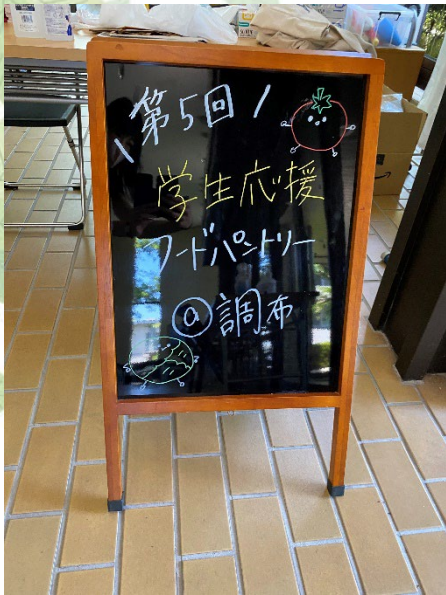 \第5回/
学生応援
フードパントリー
@調布